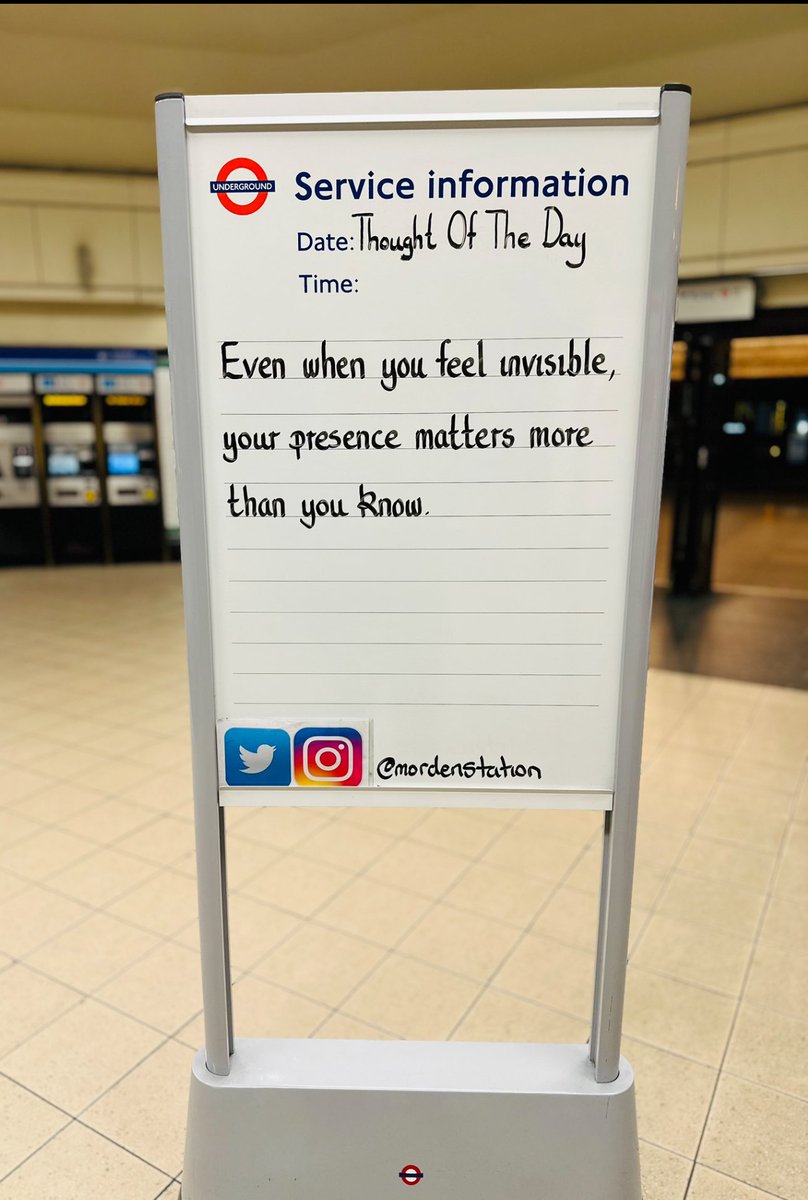 UNDERGROUND
Service information
Date: Thought Of The Day
Time:
Even when you feel invisible,
your presence matters more
than you know.
@mordenstation